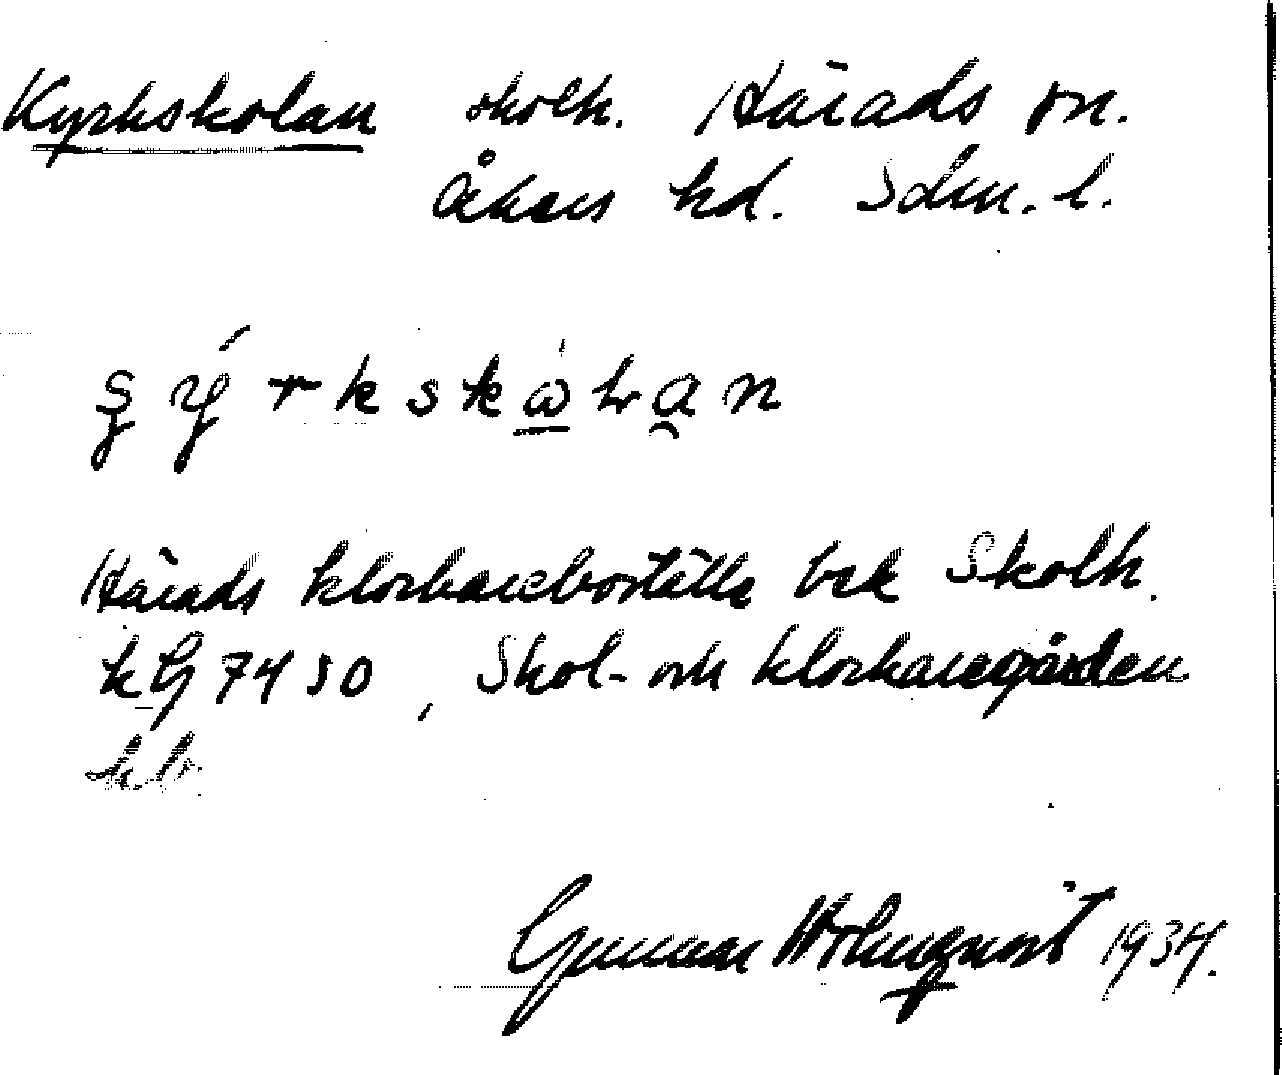 Kyrkskolan skolh. Härads sn.
Åkers hd. Sdm. l.
Härads klockareboställe bek Skolh.
kG 7450, Skol- och klockaregården
hb.
Gunnar Holmqvist 1934.